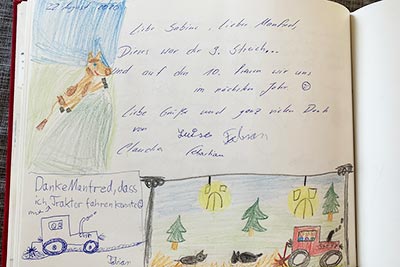 Liebe Sabine, lieber Manfred,
Dieses war der 9. Streich...
und auf den 10. freuen wir uns
im nächsten Jahr ☺
Liebe Grüße und ganz vielen Dank
von Fabian
Claudia Sebastian
Danke Manfred, dass
ich Traktor fahren konnte
Fabian